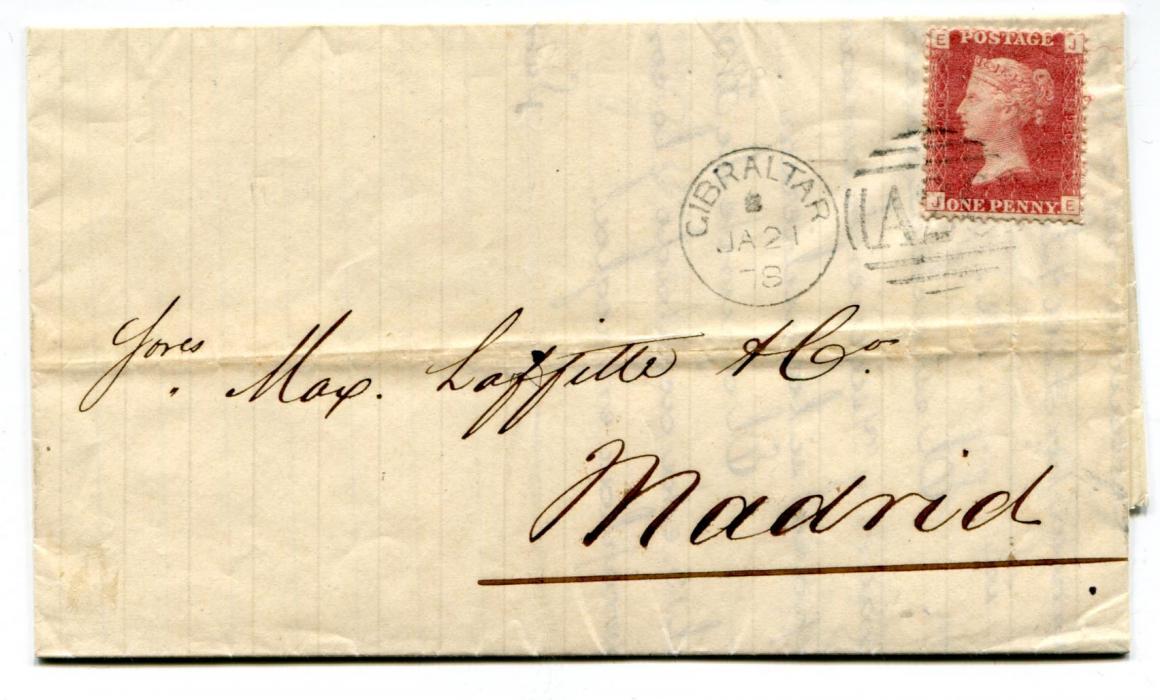 E POSTAGE J
J ONE PENNY E
GIBRALTAR
JA 21
78
A
Sores Max. Laffitte & Cos.
Madrid